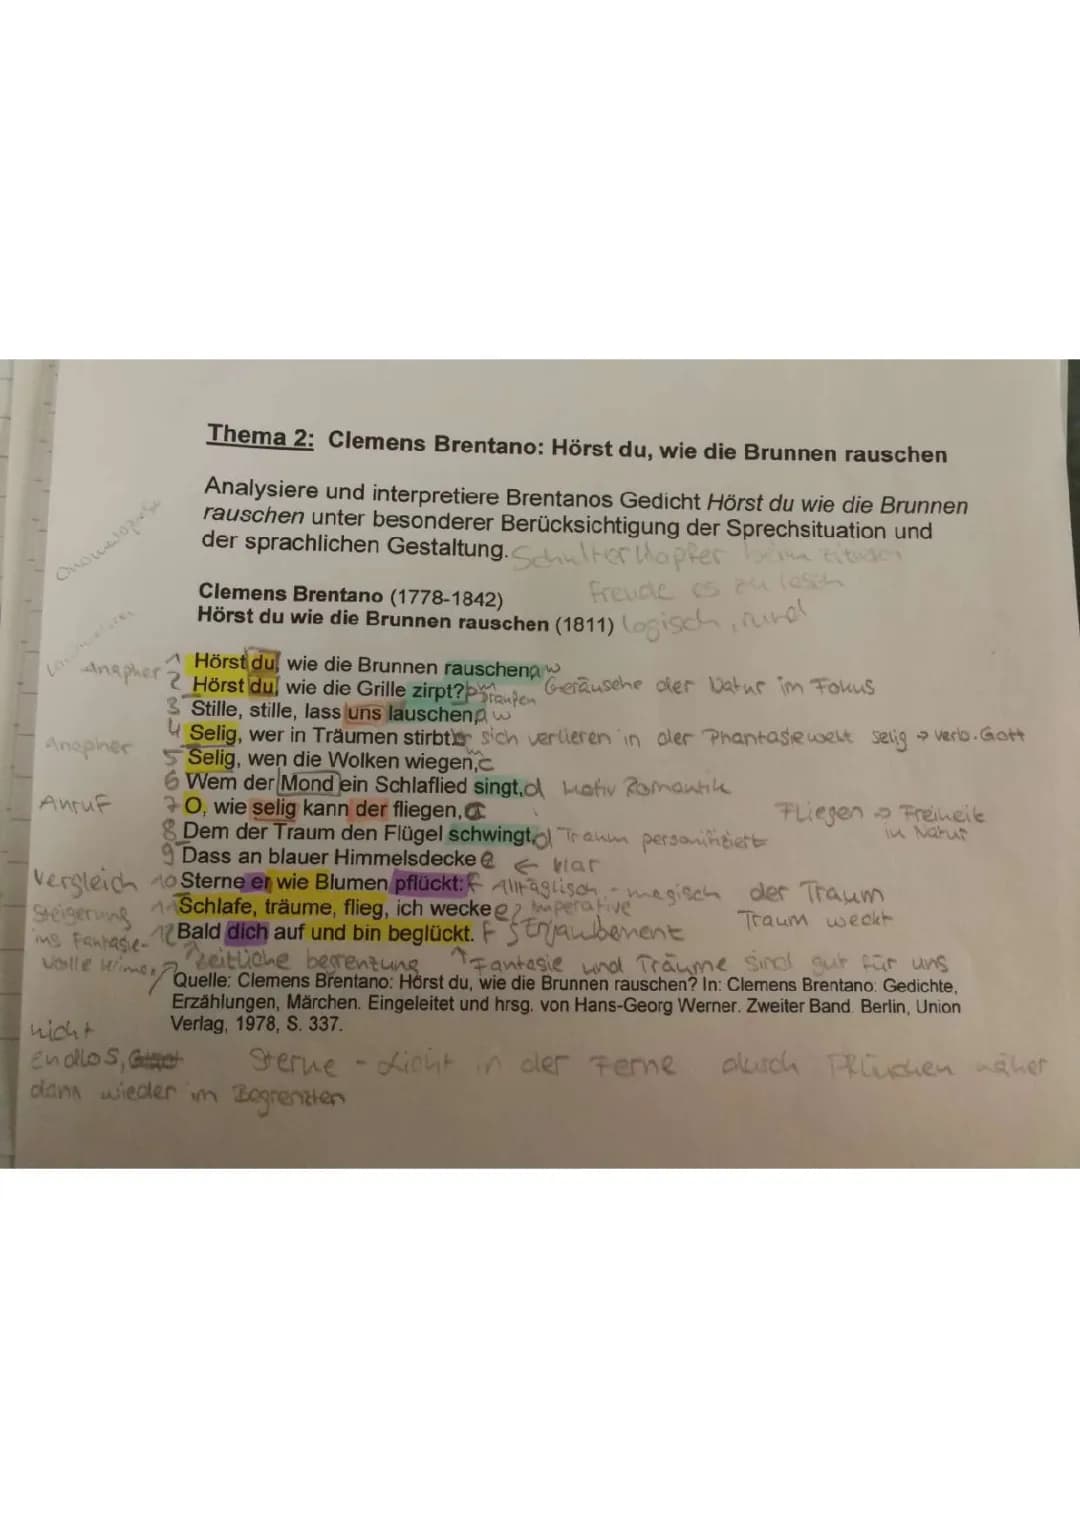 Thema 2: Clemens Brentano: Hörst du, wie die Brunnen rauschen
Analysiere und interpretiere Brentanos Gedicht Hörst du wie die Brunnen
rauschen unter besonderer Berücksichtigung der Sprechsituation und
der sprachlichen Gestaltung. Schulterklopfer beim
Freude es zu lesen
Clemens Brentano (1778-1842)
Hörst du wie die Brunnen rauschen (1811) logisch, rund
Anapher 1 Hörst du, wie die Brunnen rauschen, a w
2 Hörst du, wie die Grille zirpt? b m Geräusche der Natur im Fokus
3 Stille, stille, lass uns lauschen, a w
4 Selig, wer in Träumen stirbt. b sich verlieren in der Phantasiewelt selig → verb. Gott
Anapher 5 Selig, wen die Wolken wiegen, c
6 Wem der Mond ein Schlaflied singt, d Motiv Romantik
Anruf 7 O, wie selig kann der fliegen, c Fliegen → Freiheit
in Natur
8 Dem der Traum den Flügel schwingt, d Traum personifiziert
9 Dass an blauer Himmelsdecke e ← klar
Vergleich 10 Sterne er wie Blumen pflückt: f Alltäglisch - magisch der Traum
Steigerung 11 Schlafe, träume, flieg, ich wecke e Imperative Traum weckt
ins Fantasie- 12 Bald dich auf und bin beglückt. f Enjambement
volle zeitliche begrenzung Fantasie und Träume sind gut für uns
Quelle: Clemens Brentano: Hörst du, wie die Brunnen rauschen? In: Clemens Brentano: Gedichte,
Erzählungen, Märchen. Eingeleitet und hrsg. von Hans-Georg Werner. Zweiter Band. Berlin, Union
Verlag, 1978, S. 337.
nicht
Endlos, Sterne - Licht in der Ferne durch Pflücken näher
dann wieder im Begrenzten